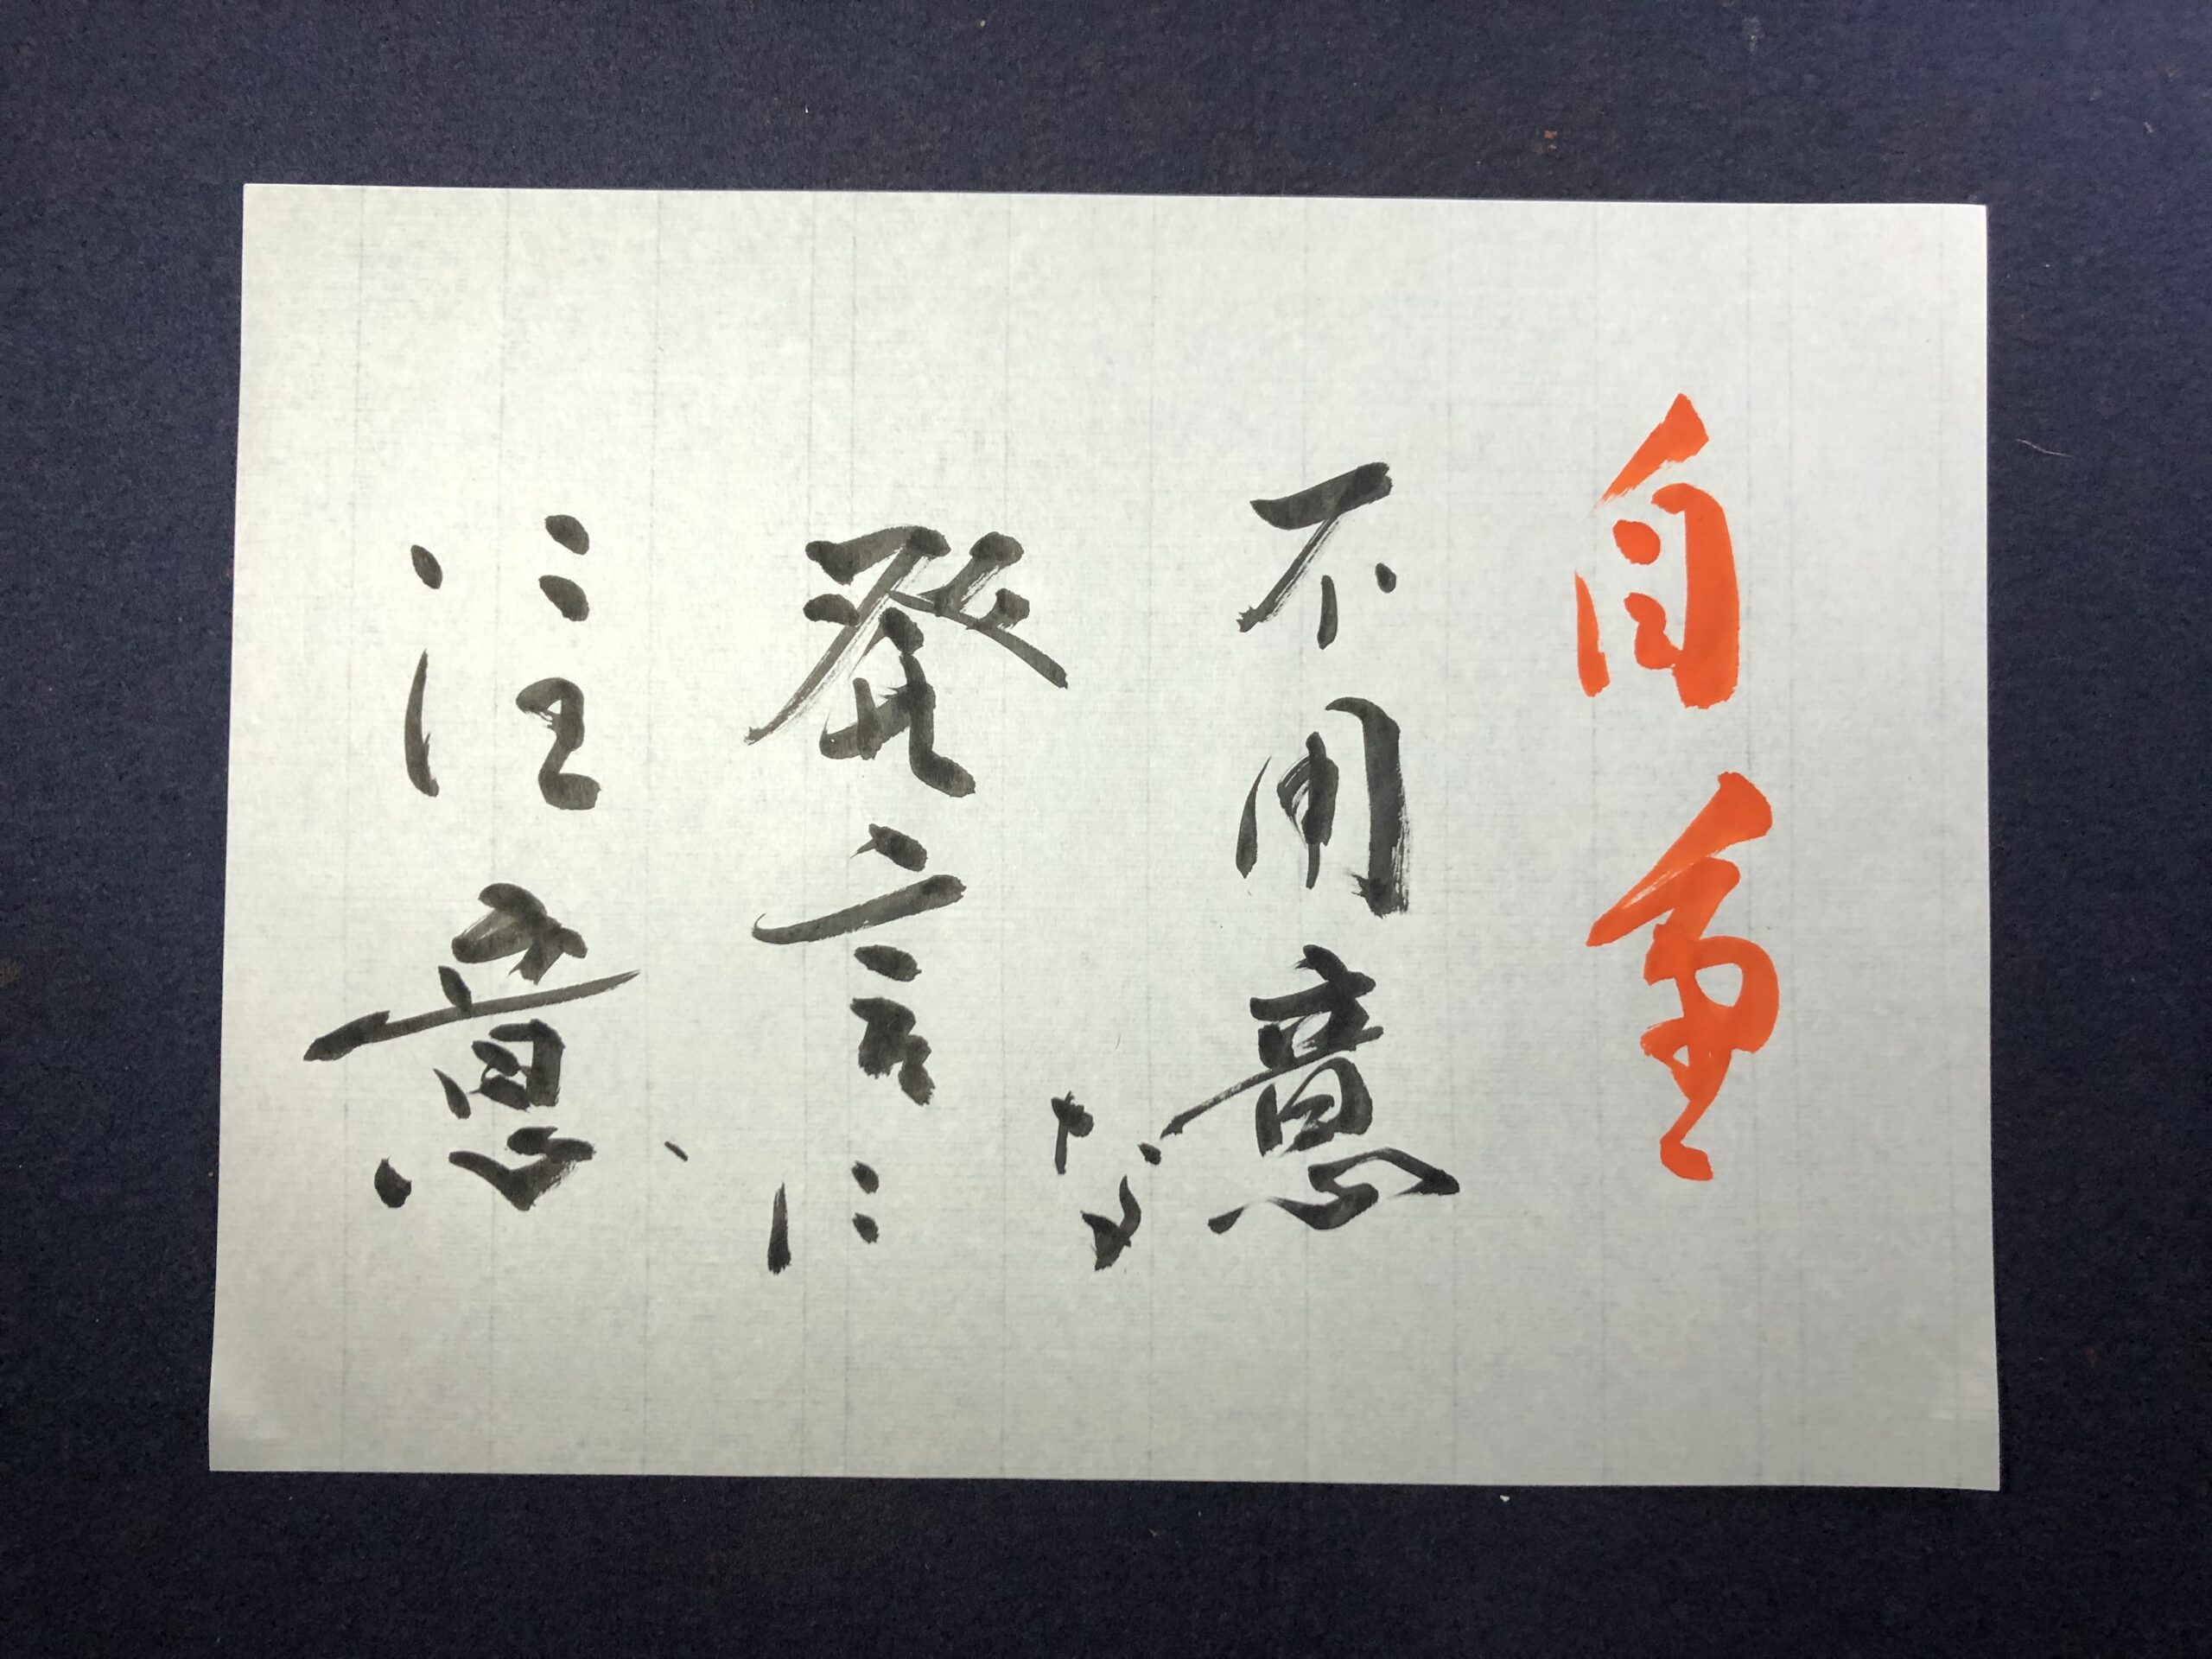 自重
不用意な
発言に、
注意